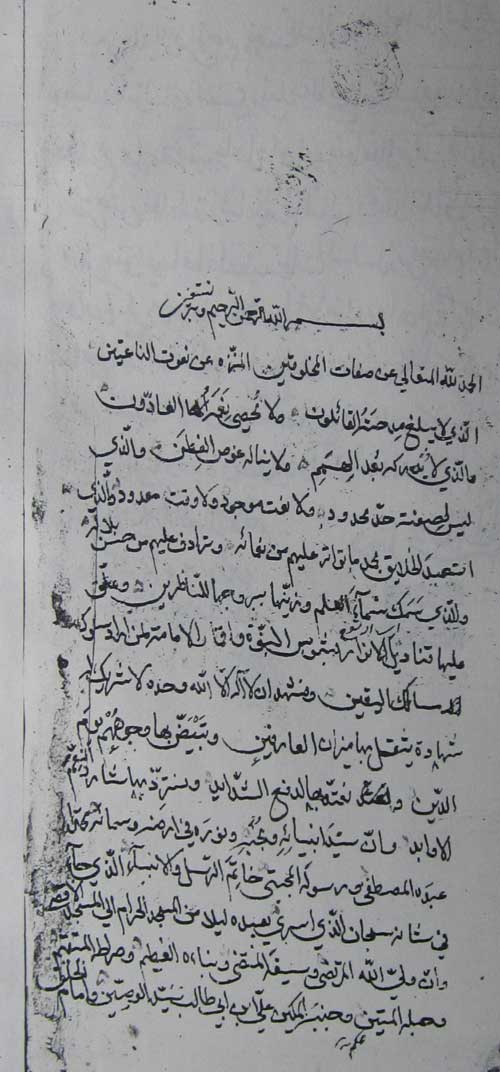 بسم الله الرحمن الرحيم وبه نستعين
الحمد لله المتعالي عن صفات المخلوقين المنزه عن نعوت الناعتين
الذي لا يبلغ مدحته القائلون ولا يحصى نعمائه العادّون
والذي لا يدركه بعد الهمم ولا يناله غوص الفطن والذي
ليس لصفته حدّ محدود ولا نعت موجود ولا وقت معدود والذي
استحمد الخلايق بحمد ما تواتر عليهم من نعمائه وترادف عليهم من حسن بلائه
والذي سمك سماء العلم وزينها ببروجها للناظرين وعلّق
عليها قناديل الانوار بشموس النبوة واقمار الامامة لمن اراد سلوك
مسالك اليقين ونشهد ان لا اله الا الله وحده لا شريك له
شهادة يثقل بها ميزان العارفين وتبيّض بها وجوههم يوم
الدين و بها لدفع الشدايد ونسترد بها شارد النعم
الاوابد وانّ سيد انبيائه ونوره في ارضه وسمائه محمدا
عبده المصطفى ورسوله المجتبى خاتم الرسل والانبياء الذي جاء
في شانه سبحان الذي اسرى بعبده ليلا من المسجد الحرام الى المسجد الاقصى
وان وليّ الله المرتضى وسيفه المنتضى ونباءه العظيم وصراطه المستقيم
وحبله المتين وجنبه المكين علي بن ابي طالب سيّد الوصيّين وامام